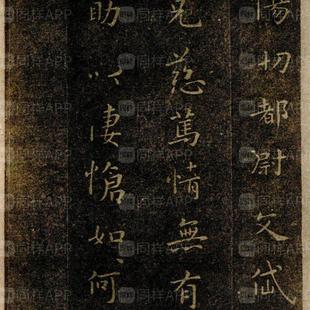 傷切都尉文岱
兄慈篤情無有
助以悽愴如何